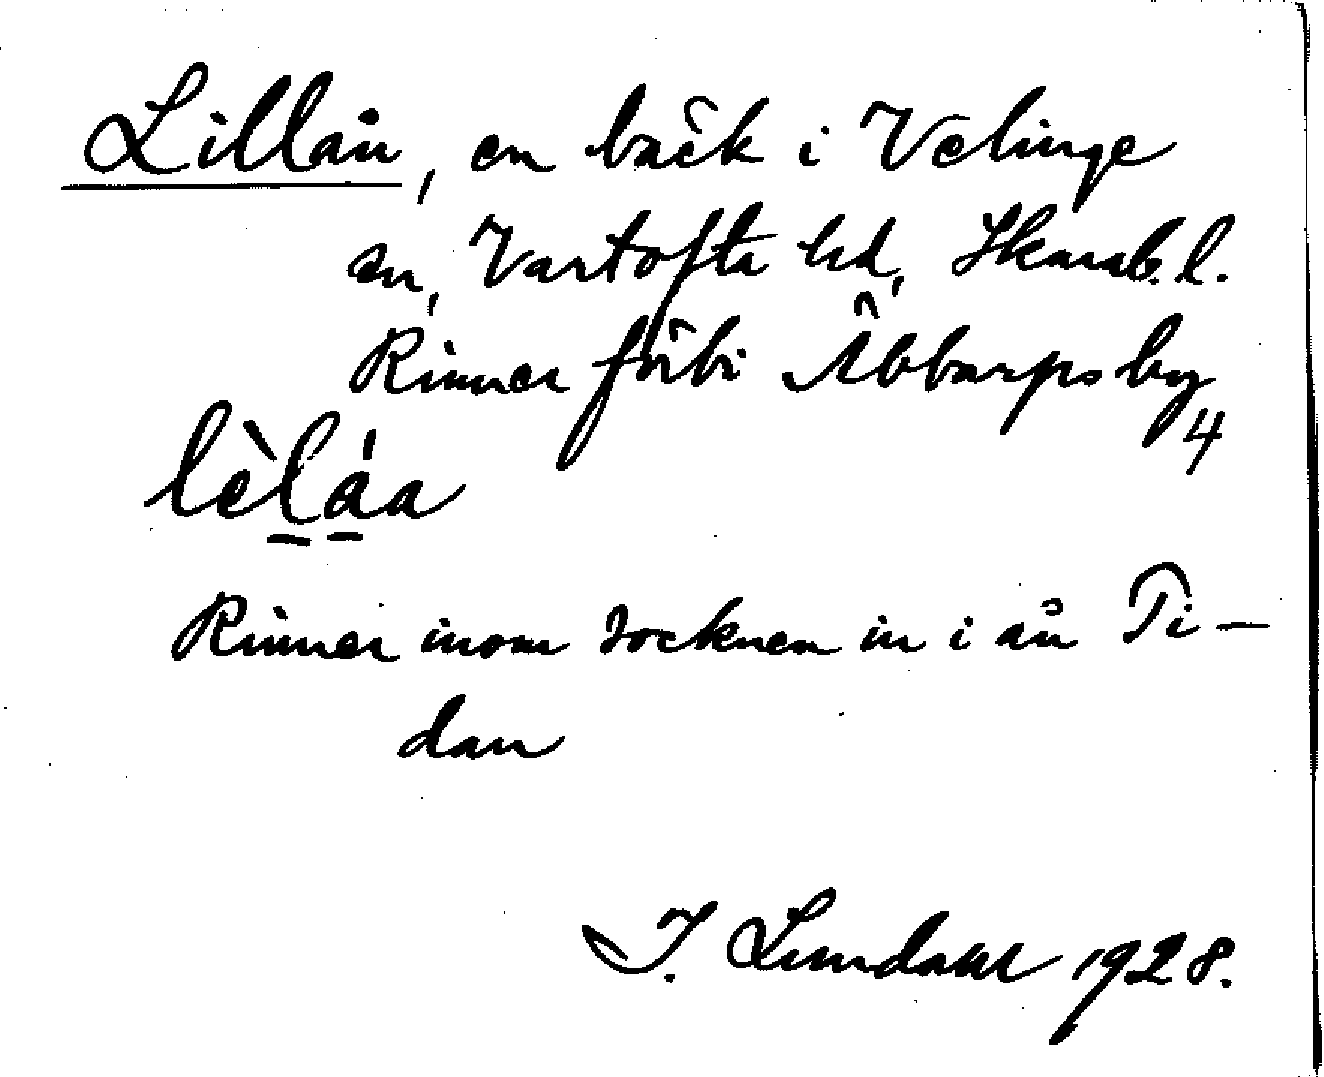 Lillån, en bäck i Velinge
sn, Vartofta hd, Skarab.l.
Rinner förbi Äbbarps by
4
lèláa
Rinner inom socknen in i ån Ti-
dan
I. Lundahl 1928.